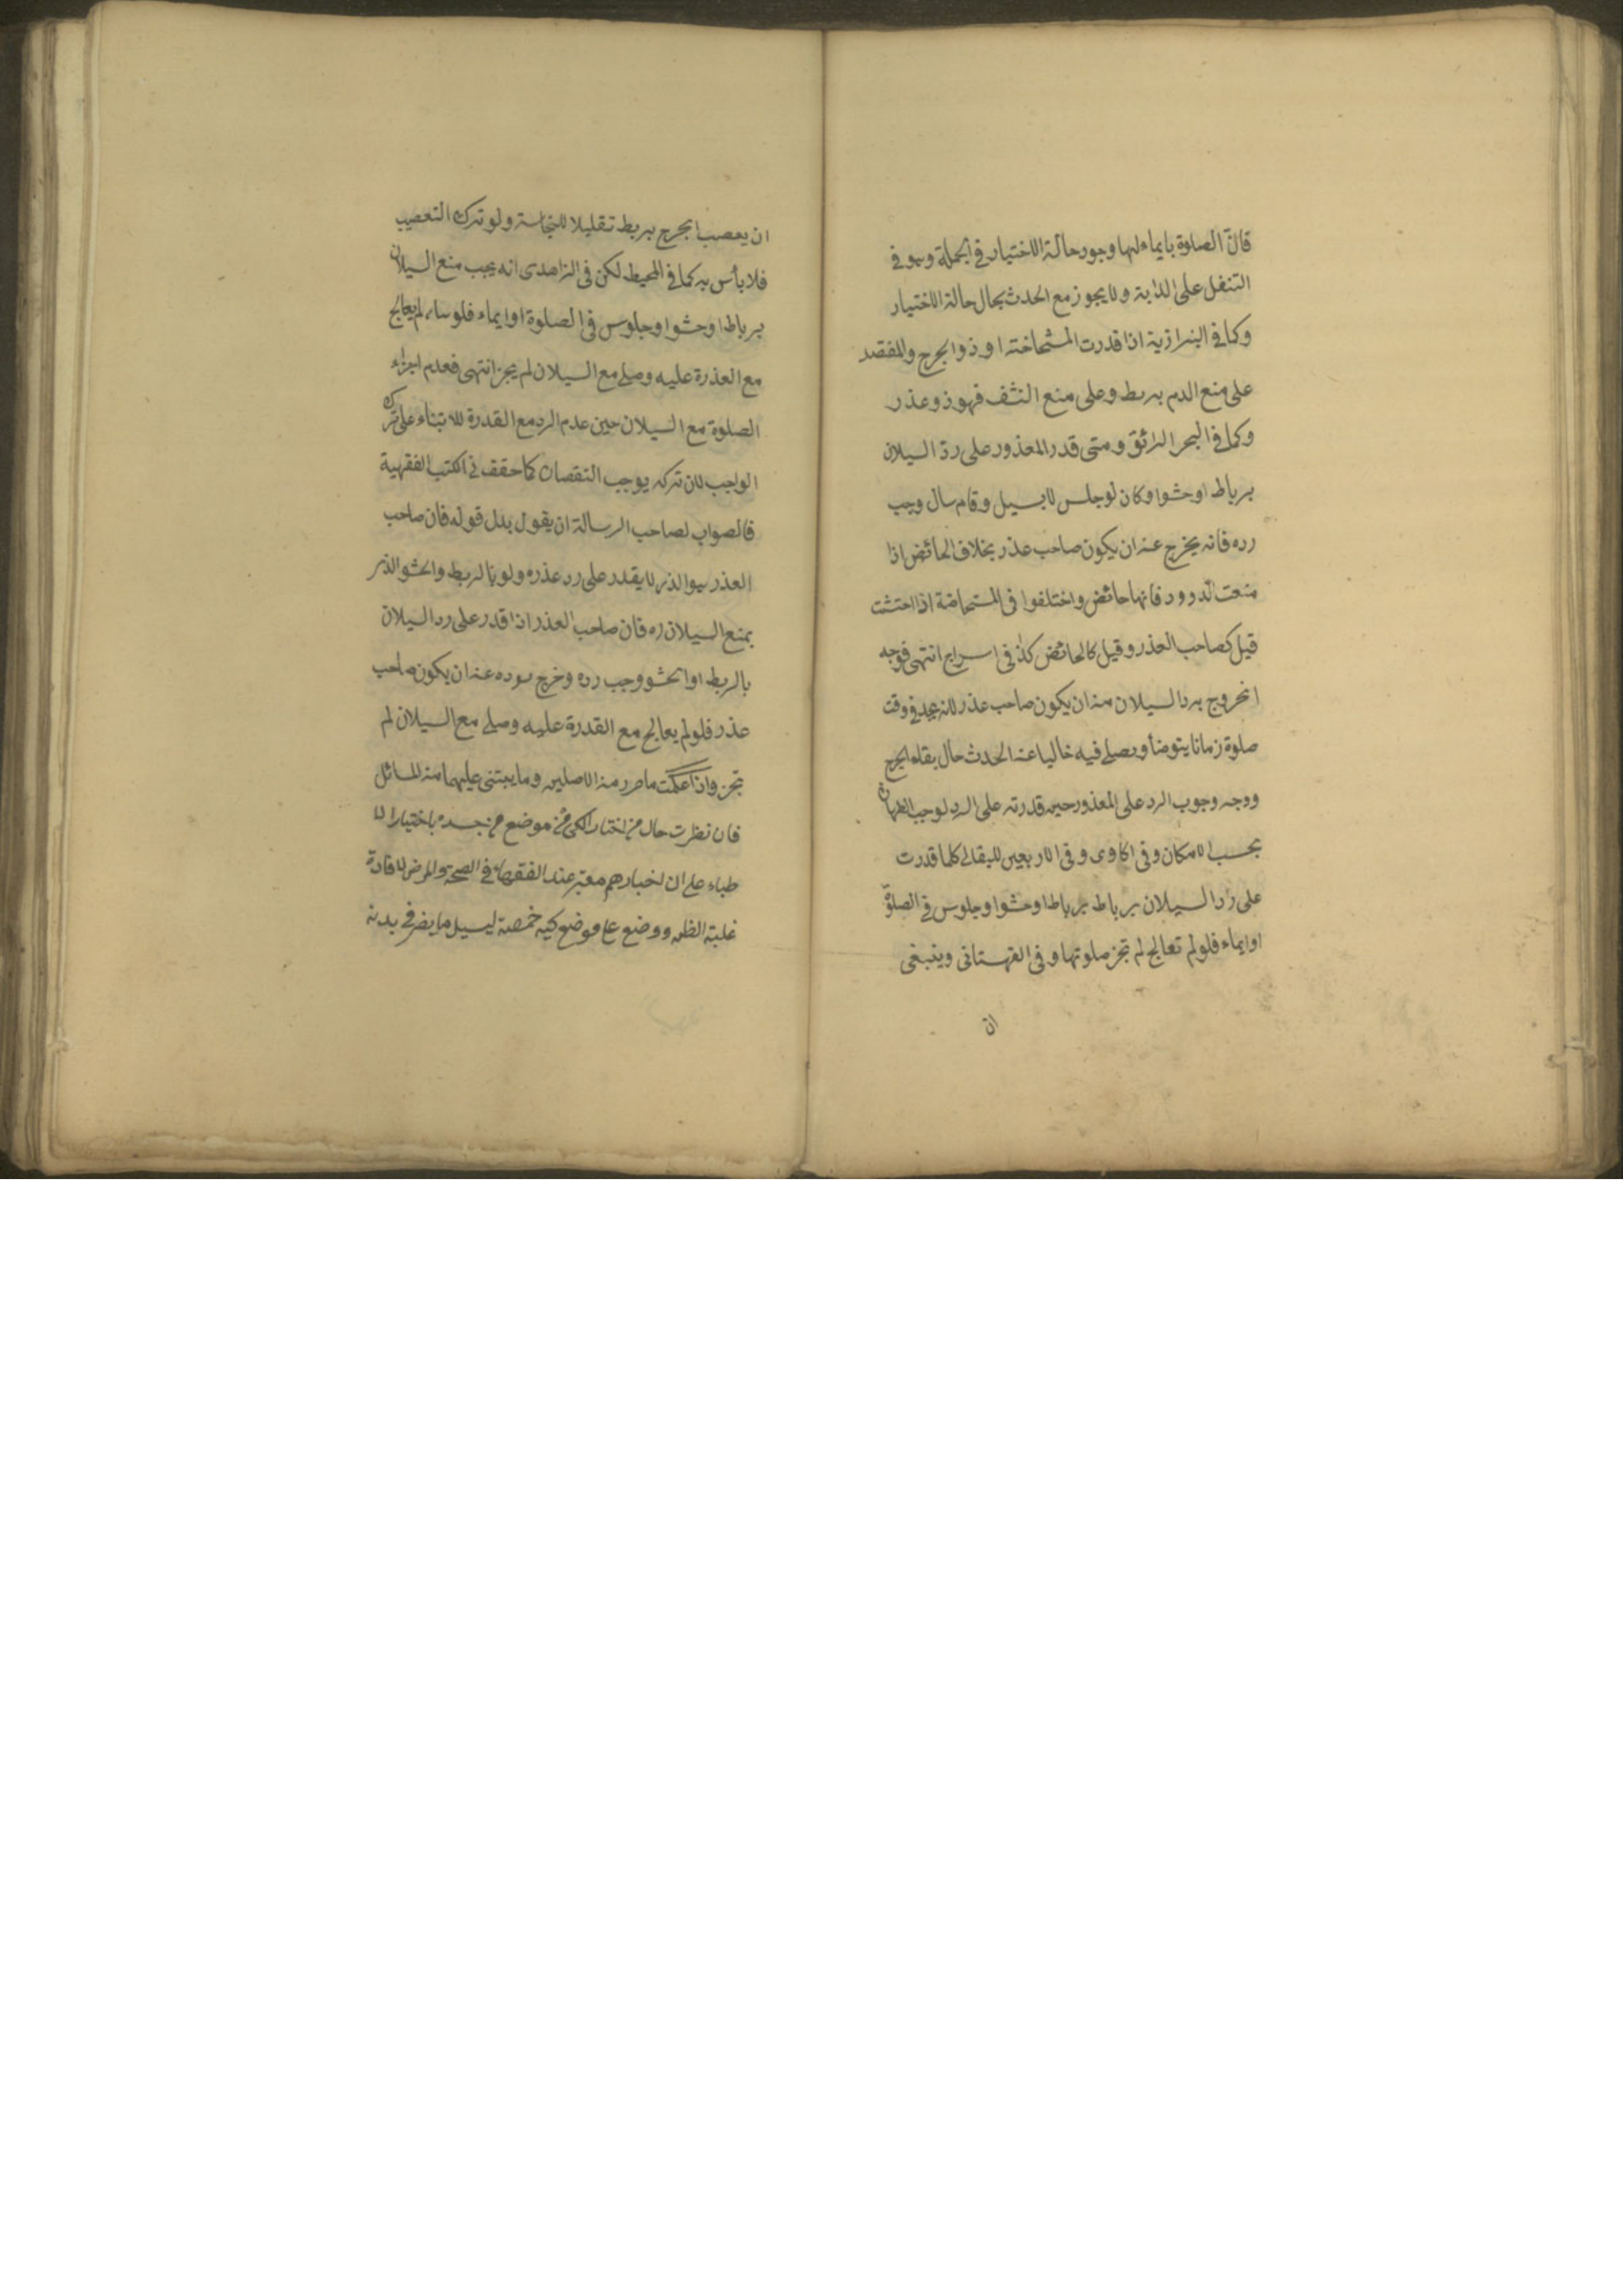 قال الصلوة بايماء لها وجود حالة الاختيار في الجملة وهو في
التنفل على الدابة ولا يجوز مع الحدث بحال حالة الاختيار
وكما في البزازية اذا قدرت المستحاضة او ذو الجرح والمفتصد
على منع الدم بربط وعلى منع النشف فهو ذو عذر
وكما في البحر الرائق ومتى قدر المعذور على رد السيلان
برباط او حشو او كان لو جلس لا يسيل وقام سال وجب
رده فانه يخرج عن ان يكون صاحب عذر بخلاف الحائض اذا
منعت الدرور فانها حائض واختلفوا في المستحاضة اذا احتشت
قيل كصاحب العذر وقيل كالحائض كذا في السراج انتهى فوجه
الخروج برد السيلان من ان يكون صاحب عذر لانه يجد في وقت
صلوة زمانا يتوضأ ويصلي فيه خاليا عن الحدث حال بقاء الجرح
ووجه وجوب الرد على المعذور حين قدرته على الرد لوجب الطهارة
بحسب الامكان وفي الحاوي وفي الاربعين للبقالي كلما قدرت
على رد السيلان برباط برباط او حشو او جلوس في الصلوة
او ايماء فلو لم تعالج لم تجز صلوتها وفي القهستاني وينبغي
ان
ان يعصب الجرح بربط تقليلا للنجاسة ولو ترك التعصيب
فلا بأس به كما في المحيط لكن في الزاهدي انه يجب منع السيلان
برباط او حشو او جلوس في الصلوة او ايماء فلو لم يعالج
مع القدرة عليه وصلى مع السيلان لم يجز انتهى فعدم اجزاء
الصلوة مع السيلان حين عدم الرد مع القدرة للابتناء على ترك
الواجب لان تركه يوجب النقصان كما حقق في الكتب الفقهية
فالصواب لصاحب الرسالة ان يقول بدل قوله فان صاحب
العذر هو الذي لا يقدر على رد عذره ولو بالربط والحشو الذي
يمنع السيلان اه فان صاحب العذر اذا قدر على رد السيلان
بالربط او الحشو وجب رده وخرج برده عن ان يكون صاحب
عذر فلو لم يعالج مع القدرة عليه وصلى مع السيلان لم
تجز واذا علمت ما مر من الاصلين وما يبتنى عليهما من المسائل
فان نظرت حال من اختار الكي في موضع من جسده باختيار الا
طباء على ان اخبارهم معتبر عند الفقهاء في الصحة والمرض لافادة
غلبة الظن ووضع على موضع كيه حمصة ليسيل ما يضر في بدنه